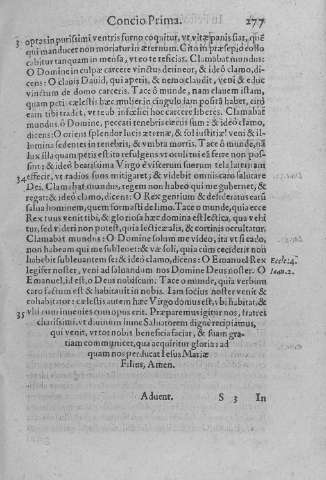 Concio Prima. 277
3 optas in purissimi ventris furno coquitur, vt vitæ panis fiat, quē
qui manducet non moriatur in æternum. Cito in præsepio collo
cabitur tanquam in mensa, vt eo te reficias. Clamabat mundus:
O Domine in culpæ carcere vinctus detineor, & ideò clamo, di-
cens: O clauis Dauid, qui aperis, & nemo claudit, veni & educ
vinctum de domo carceris. Tace ô munde, nam clauem istam,
quam petis cælestis hæc mulier in cingulo iam positā habet, citò
eam tibi tradet, vt te ab infœlici hoc carcere liberes. Clamabat
mundus: ô Domine, peccati tenebris circūdatus sum: & ideò clamo,
dicens: O oriens splendor lucis æternæ, & sol iustitiæ veni & il-
lumina sedentes in tenebris, & vmbra mortis. Tace ô munde, nā
lux illa quam petis est ita refulgens vt oculi tui eā ferre non pos-
sint: & ideò beatissima Virgo è viscerum suorum tela laternam
34 effecit, vt radios suos mitigaret; & videbit omnis caro salutare
Dei. Clamabat mundus, regem non habeo qui me gubernet, &
regat: & ideò clamo, dicens: O Rex gentium & desideratus earū
salua hominem, quem formasti de limo. Tace o munde, quia ecce
Rex tuus venit tibi, & gloriosa hæc domina est lectica, qua vehi
tur, sed videri non potest, quia lecticæ alis, & cortinis occultatur.
Clamabat mundus: O Domine solum me video, ita vt si cadā,
non habeam qui me subleuet: & væ soli, quia cùm ceciderit non
habebit subleuantem se: & ideò clamo, dicens: O Emanuel Rex Eccle. 4.
legifer noster, veni ad saluandum nos Domine Deus noster. O Ioan. 2.
Emanuel, id est, ô Deus nobiscum. Tace ô munde, quia verbum
caro factum est & habitauit in nobis. Iam socius noster venit &
cohabitator: cælestis autem hæc Virgo domus est, vbi habitat, &
35 vbi eum inuenies cum opus erit. Præparemus igitur nos, fratres
charissimi, vt diuinum hunc Saluatorem dignè recipiamus,
qui venit, vt tot nobis beneficia faciat, & suam gra-
tiam communicet, qua acquiritur gloria: ad
quam nos perducat Iesus Mariæ
Filius, Amen.
Aduent. S 3 In